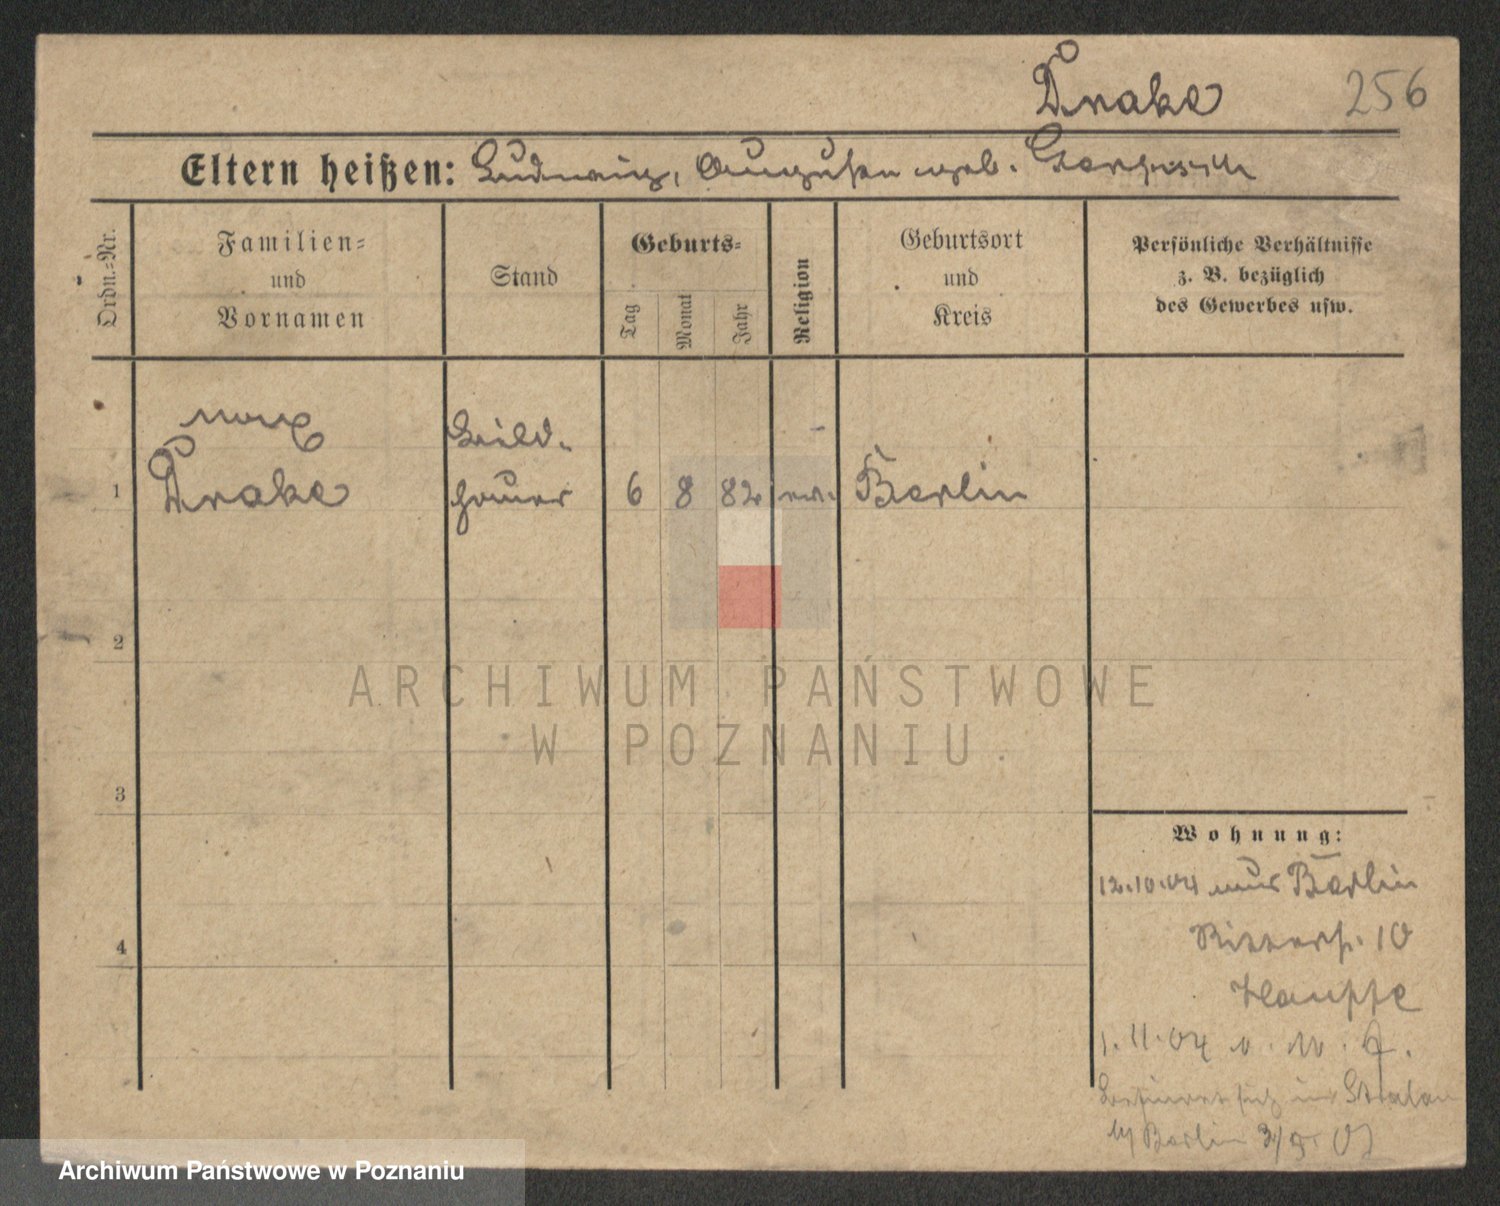 Drake 256
Eltern heißen: Ludwig, Augusten geb.
Ordn.-Nr.
Familien-
und
Vornamen
Stand
Geburts-
Tag
Monat
Jahr
Religion
Geburtsort
und
Kreis
Persönliche Verhältnisse
z. B. bezüglich
des Gewerbes usw.
Max
Bild-
1 Drake hauer 6 8 82 ev. Berlin
2
3
4
Wohnung:
12.10.04 aus Berlin
Ritterstr. 10
Hauffe
1.11.04 v. W. A.
befindet sich in Stralau
b/ Berlin 3/5 07
ARCHIWUM PAŃSTWOWE
W POZNANIU
Archiwum Państwowe w Poznaniu